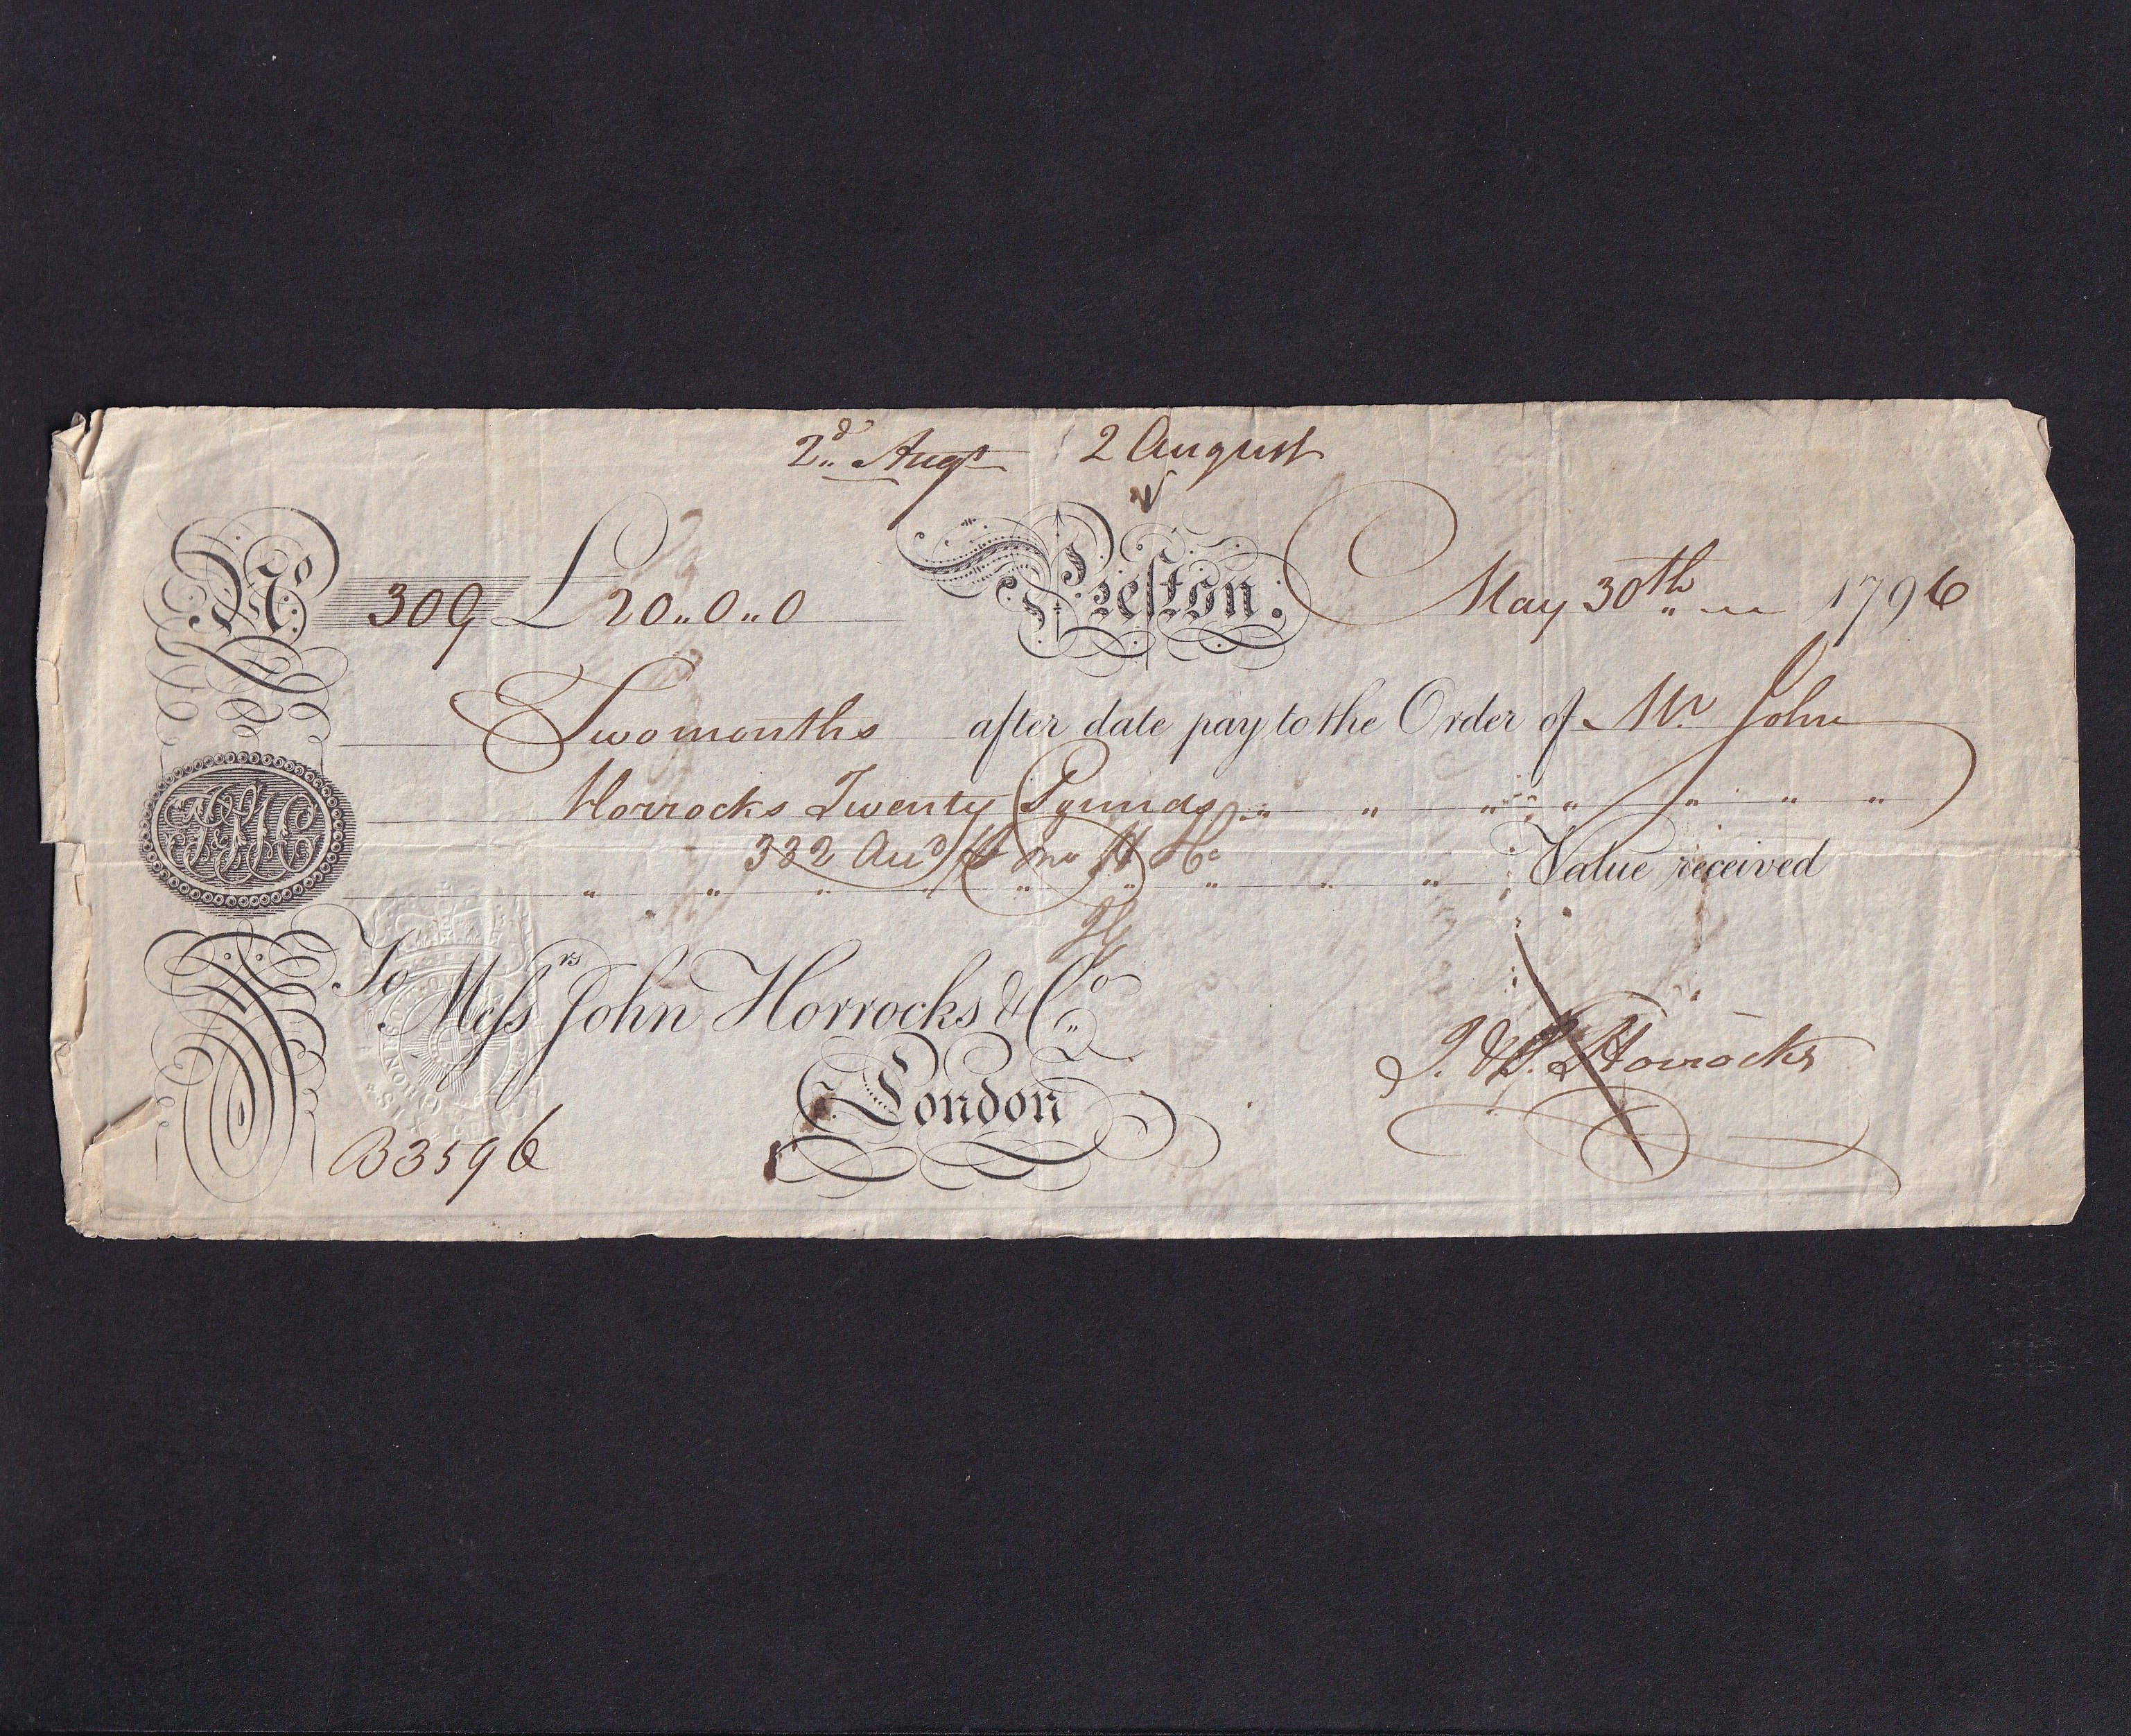 2d Augt 2 August
No 309 £ 20..0..0 Preston. May 30th 1796
Two months after date pay to the Order of Mr John
Horrocks Twenty Pounds
382
Value received
To Messrs John Horrocks & Co
London
J. & S. Horrocks
B3596